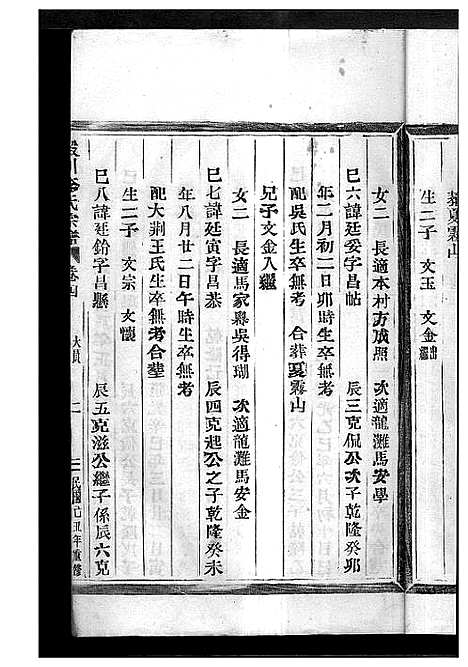 葬夏霧山
生二子 文玉 文金出繼
女二 長適本村方成照 次適龍灘馬安學
巳六諱廷委字昌帖 辰三克侃公次子乾隆癸卯
年二月初二日卯時生卒無考
配吳氏生卒無考 合葬夏霧山
兄子文金入繼
女二 長適馬家縣吳得瑚 次適龍灘馬安金
巳七諱廷寅字昌恭 辰四克起公之子乾隆癸未
年八月廿二日午時生卒無考
配大荆王氏生卒無考合葬
生二子 文宗 文懷
巳八諱廷鈖字昌縣 辰五克滋公繼子係辰六克
川 氏宗譜 卷四 二 民國己丑年重修